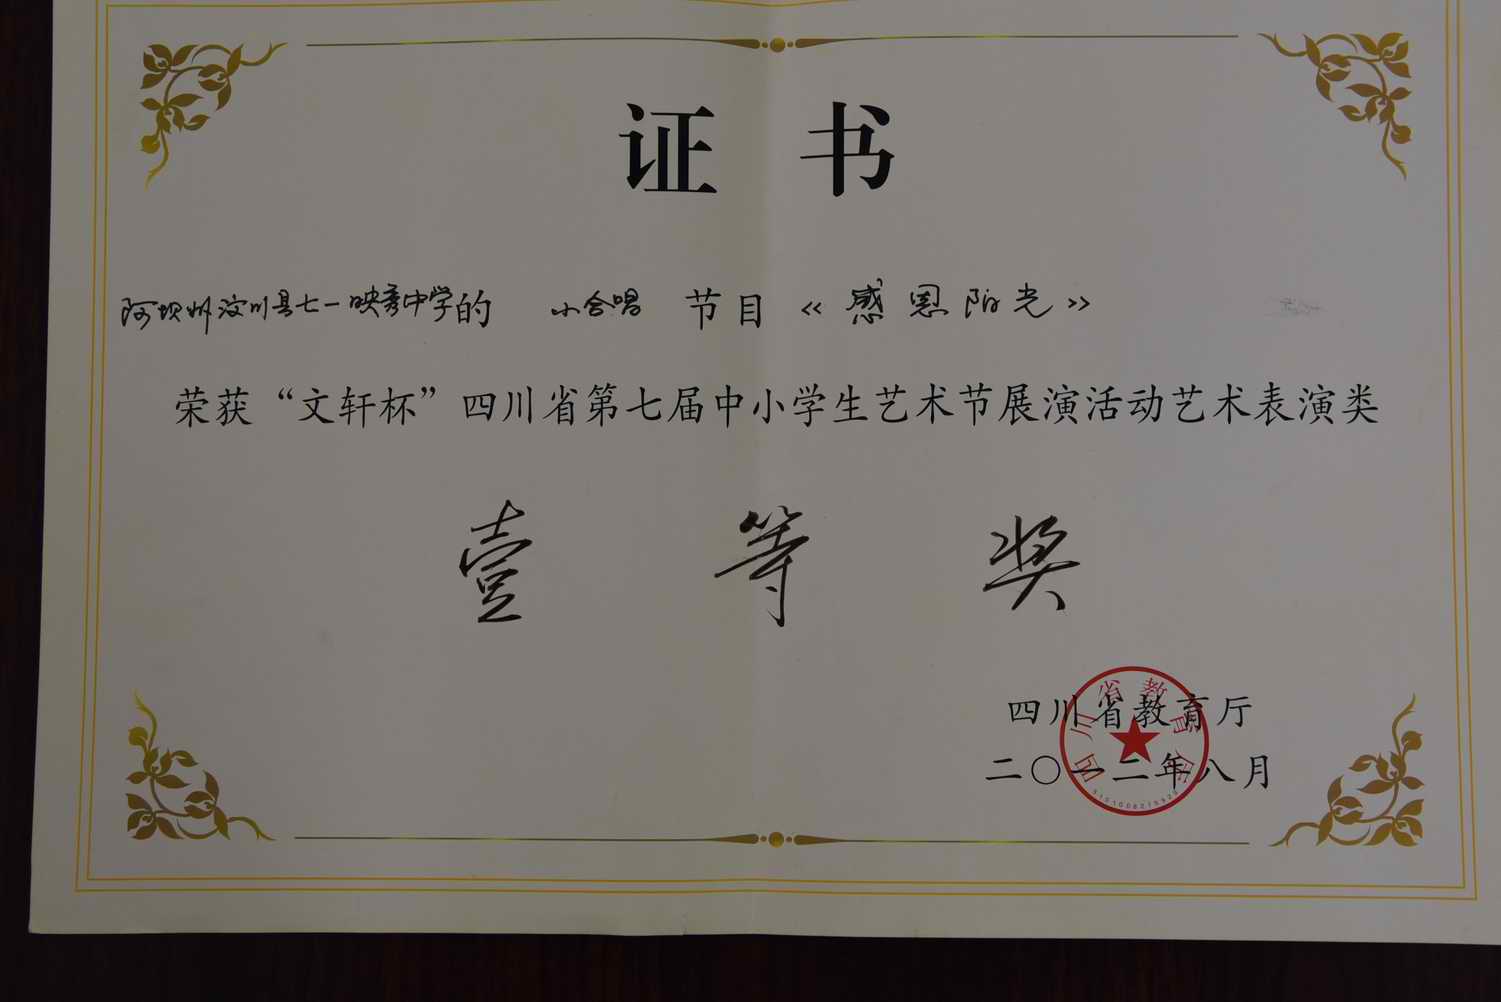 证书
阿坝州汶川县七一映秀中学的 小合唱 节目《感恩阳光》
荣获“文轩杯”四川省第七届中小学生艺术节展演活动艺术表演类
壹等奖
四川省教育厅
二〇一二年八月
四川省教育厅